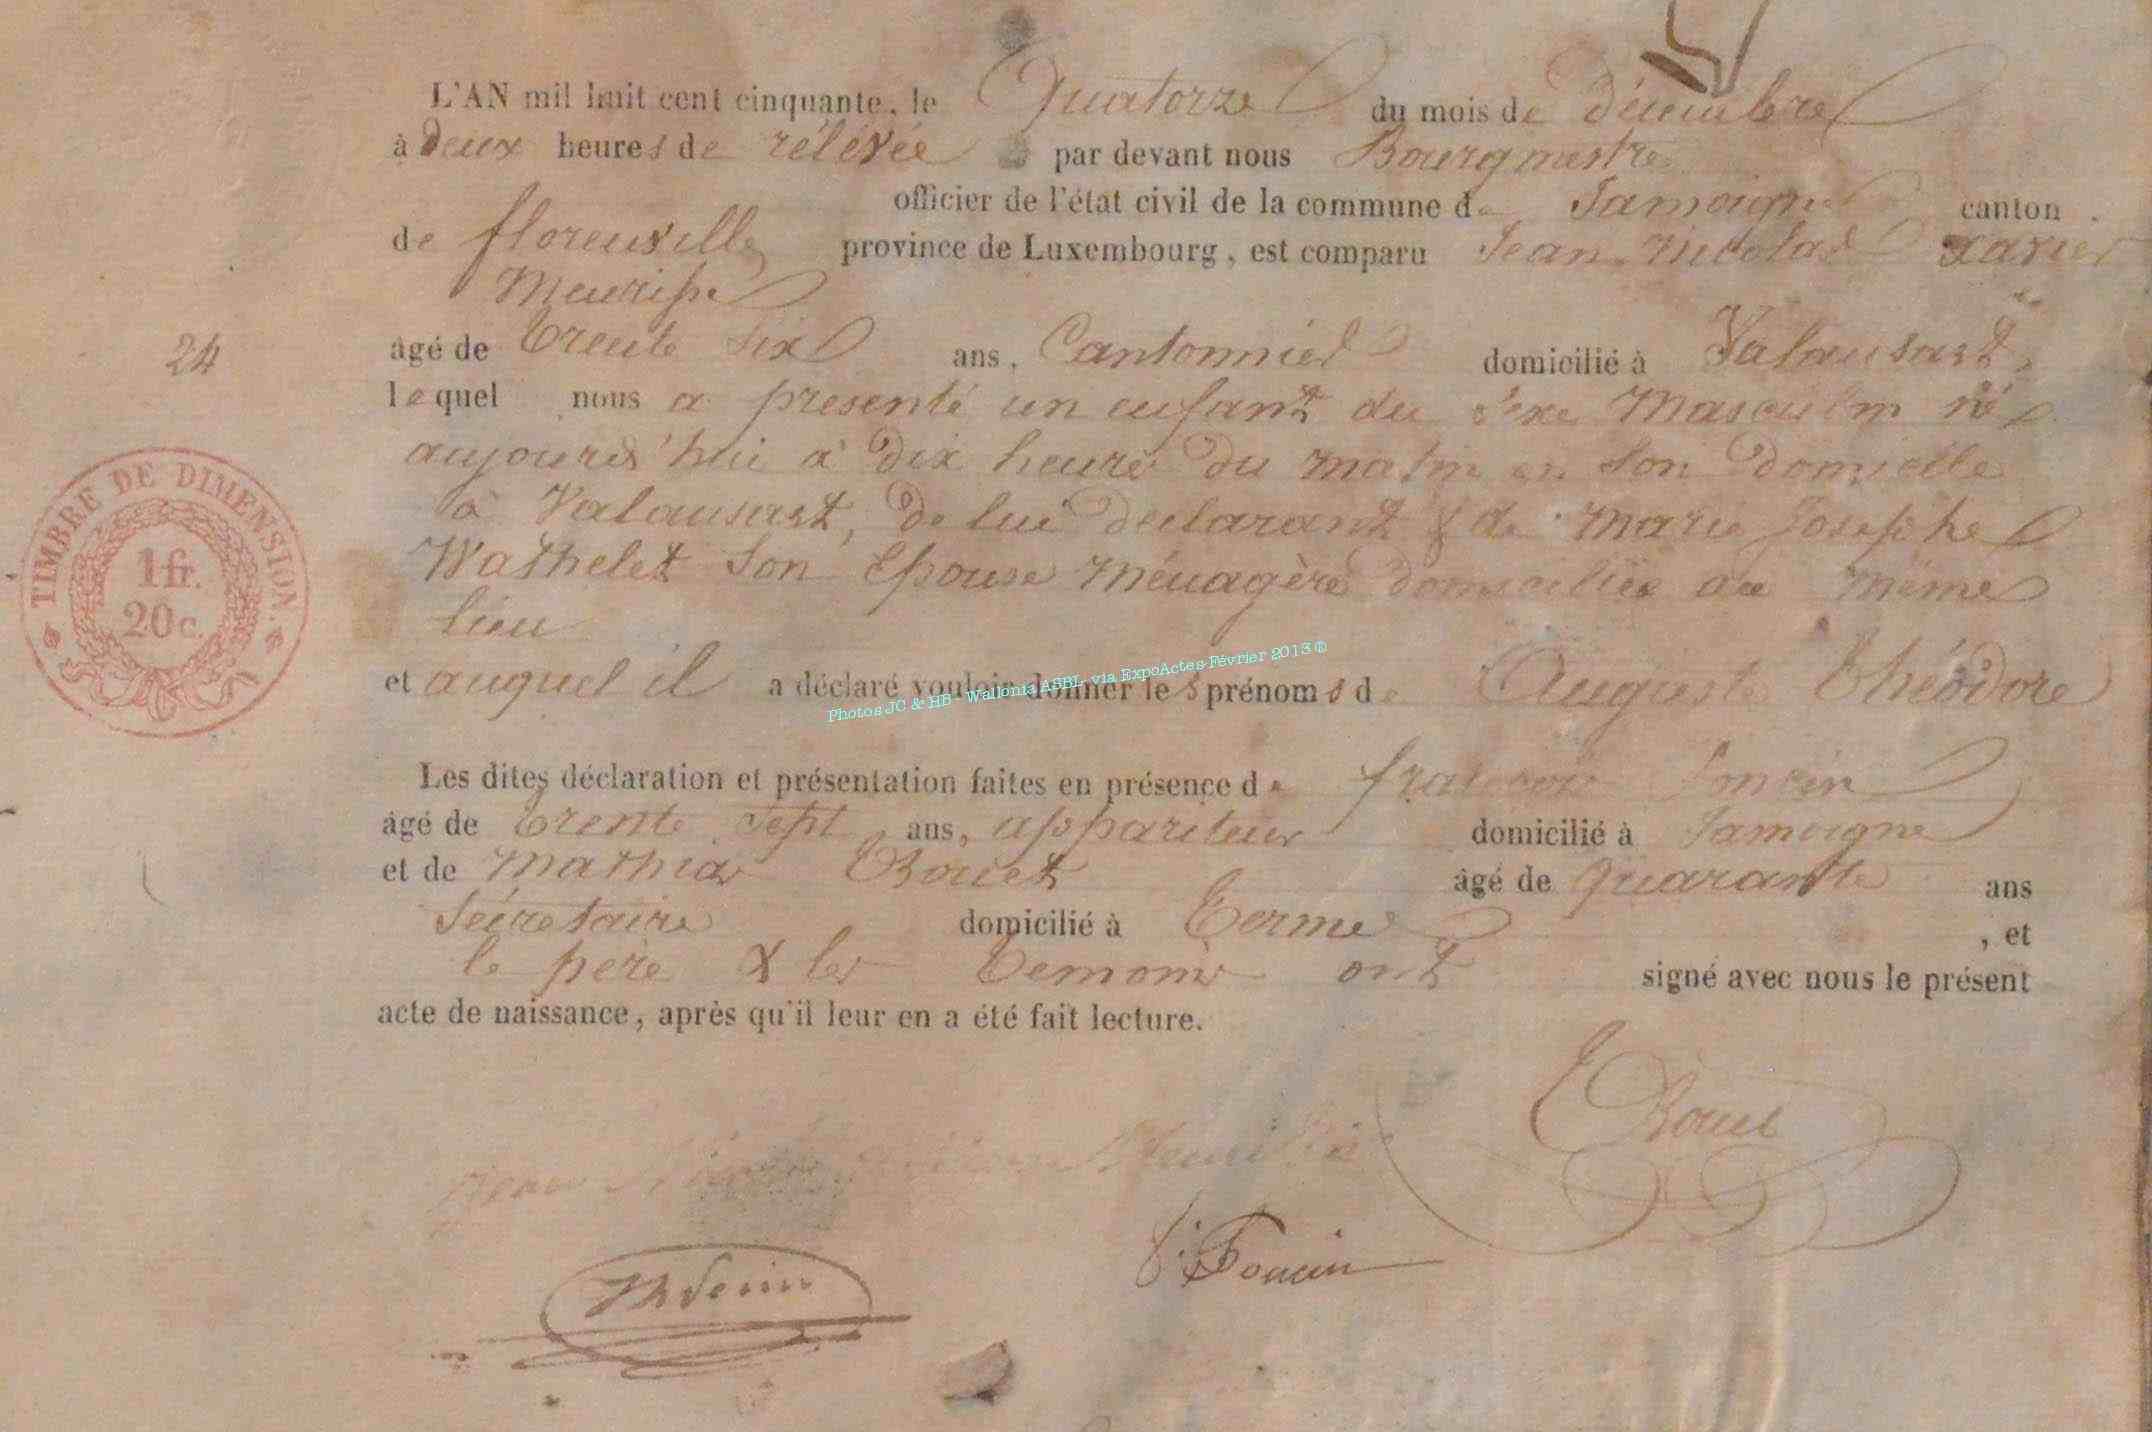 L'AN mil huit cent cinquante, le Quatorze du mois de décembre
à deux heures de rélévée par devant nous Bourgmestre
officier de l'état civil de la commune de Jamoigne canton
de florenville province de Luxembourg, est comparu Jean Nicolas Xavier
Meurisse
24
âgé de trente six ans, Cantonnier domicilié à Valansart,
lequel nous a presenté un enfant du sexe Masculin né
aujourd'hui à dix heures du matin en son domicile
à Valansart, de lui declarant & de Marie Josephe
Wathelet son Epouse Ménagère domiciliée au même
lieu
TIMBRE DE DIMENSION.
1 fr.
20 c.
et auquel il a déclaré vouloir donner les prénoms de Auguste Théodore
Photos JC & HB - Wallonia ASBL via ExpoActes Février 2013 ®
Les dites déclaration et présentation faites en présence de Poncin
âgé de trente sept ans, appariteur domicilié à Jamoigne
et de Mathias Bouet âgé de quarante ans
Sécretaire domicilié à Termes , et
le père & les temoins ont signé avec nous le présent
acte de naissance, après qu'il leur en a été fait lecture.